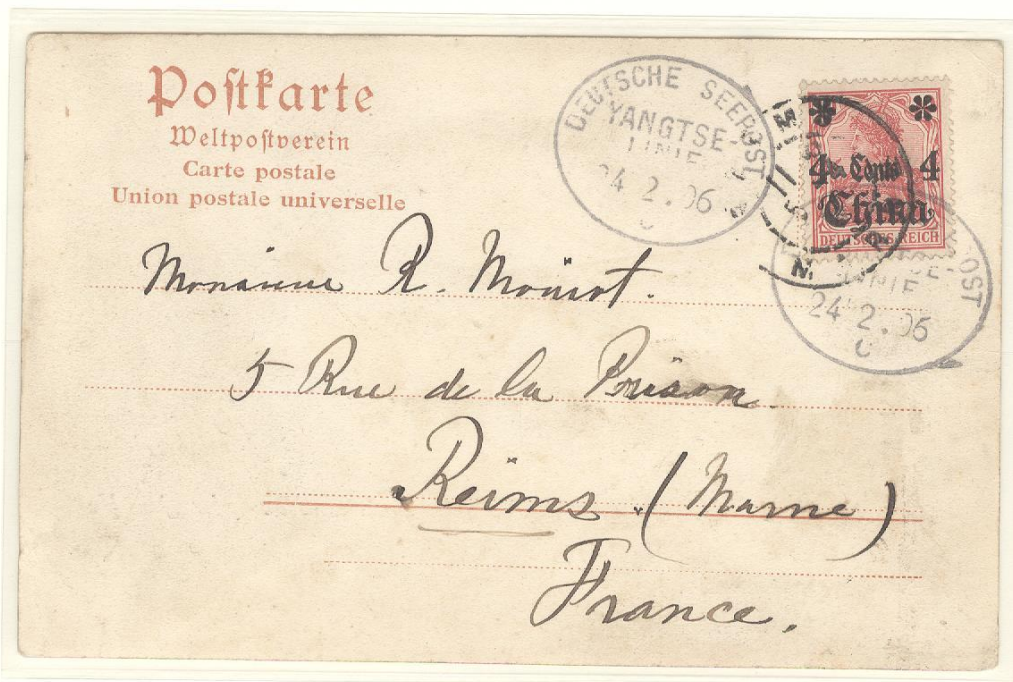 Postkarte
Weltpostverein
Carte postale
Union postale universelle
DEUTSCHE SEEPOST
YANGTSE-
LINIE
24 2.06
c
4 Cents 4
China
DEUTSCHES REICH
OST
LINIE
24 2.06
c
Monsieur R.
5 Rue de la Prison
Reims (Marne)
France.